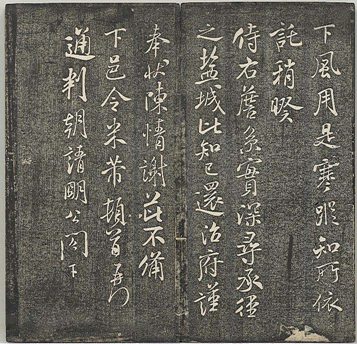 下風用是寒蹤知所依
託稍暌
侍右詹系實深尋承徑
之鹽城比知已還治府謹
奉狀陳情謝茲不備
下邑令米芾頓首再
通判朝請明公閤下